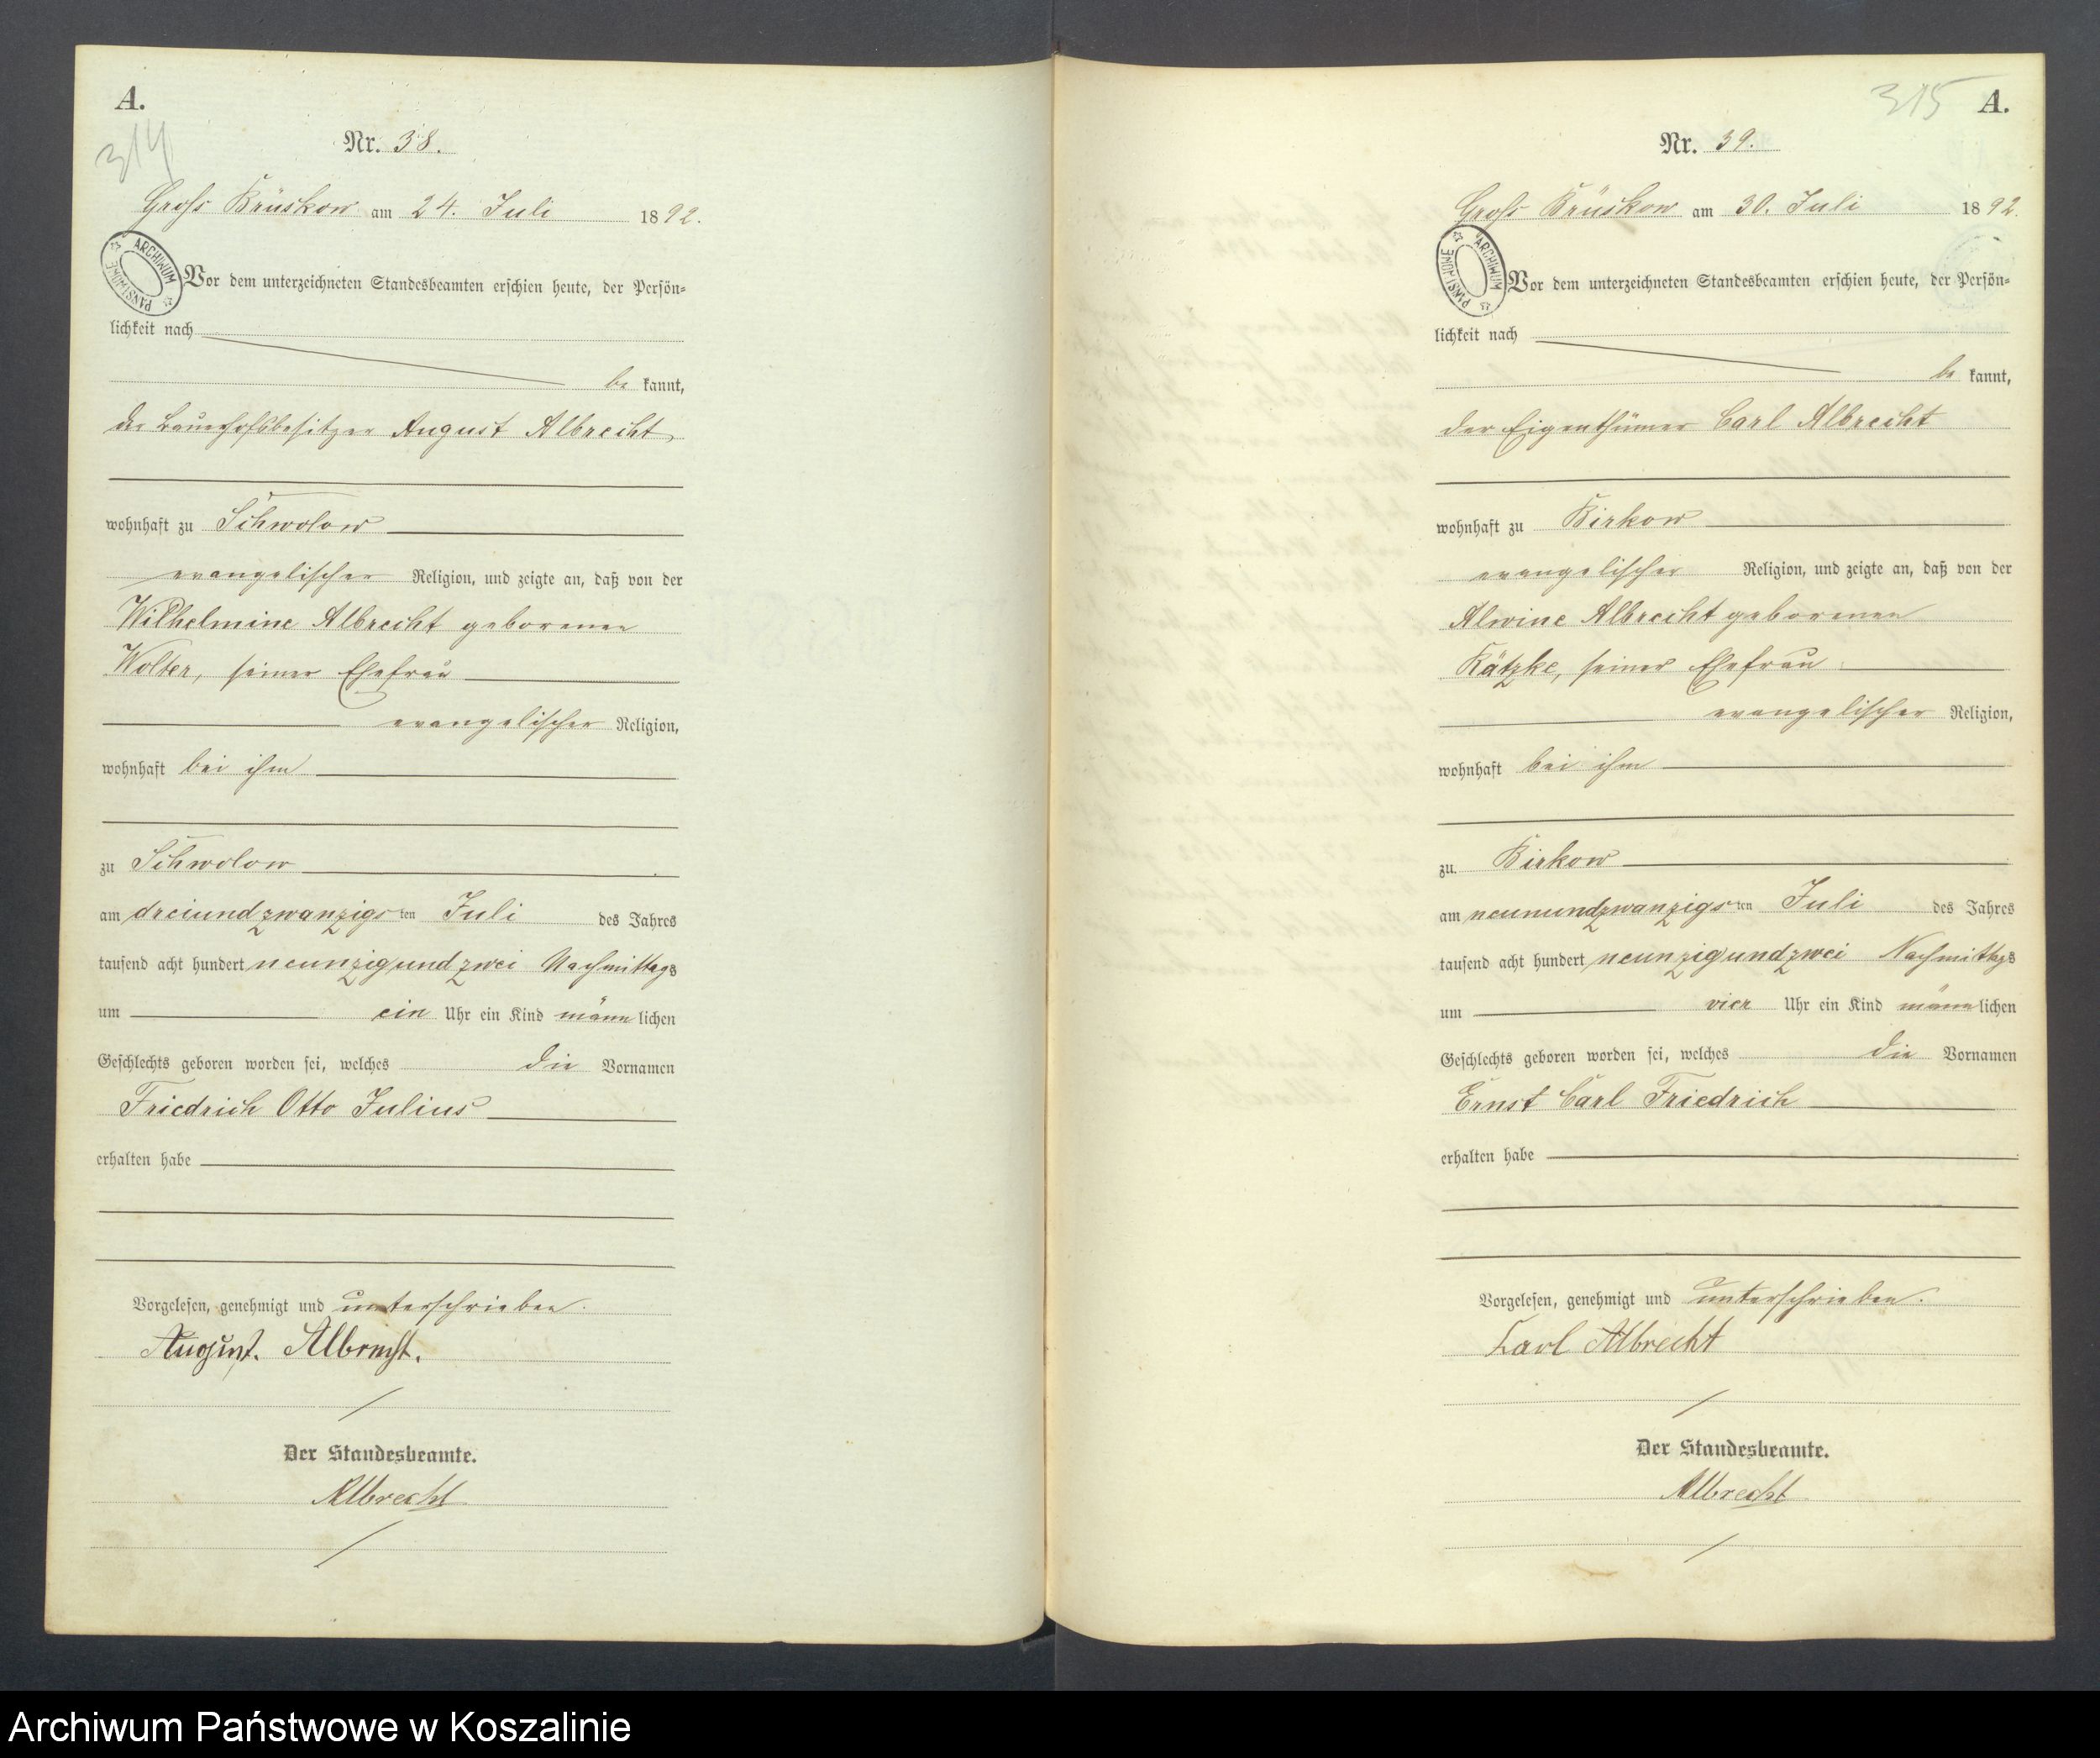 A.
314
Nr. 38.
Gross Brüskow am 24. Juli 1892.
ARCHIWUM PAŃSTWOWE
Vor dem unterzeichneten Standesbeamten erschien heute, der Persön-
lichkeit nach
be kannt,
der Bauerhofsbesitzer August Albrecht,
wohnhaft zu Schwolow
evangelischer Religion, und zeigte an, daß von der
Wilhelmine Albrecht geborenen
Wolter, seiner Ehefrau
evangelischer Religion,
wohnhaft bei ihm
zu Schwolow
am dreiundzwanzigs ten Juli des Jahres
tausend acht hundert neunzigundzwei Nachmittags
um ein Uhr ein Kind männ lichen
Geschlechts geboren worden sei, welches die Vornamen
Friedrich Otto Julius
erhalten habe
Vorgelesen, genehmigt und unterschrieben.
August. Albrecht.
Der Standesbeamte.
Albrecht
315
A.
Nr. 39.
Gross Brüskow am 30. Juli 1892.
ARCHIWUM PAŃSTWOWE
Vor dem unterzeichneten Standesbeamten erschien heute, der Persön-
lichkeit nach
be kannt,
der Eigenthümer Carl Albrecht
wohnhaft zu Birkow
evangelischer Religion, und zeigte an, daß von der
Alwine Albrecht geborenen
Kätzke, seiner Ehefrau
evangelischer Religion,
wohnhaft bei ihm
zu Birkow
am neunundzwanzigs ten Juli des Jahres
tausend acht hundert neunzigundzwei Nachmittgs
um vier Uhr ein Kind männ lichen
Geschlechts geboren worden sei, welches die Vornamen
Ernst Carl Friedrich
erhalten habe
Vorgelesen, genehmigt und unterschrieben.
Karl Albrecht
Der Standesbeamte.
Albrecht
Archiwum Państwowe w Koszalinie